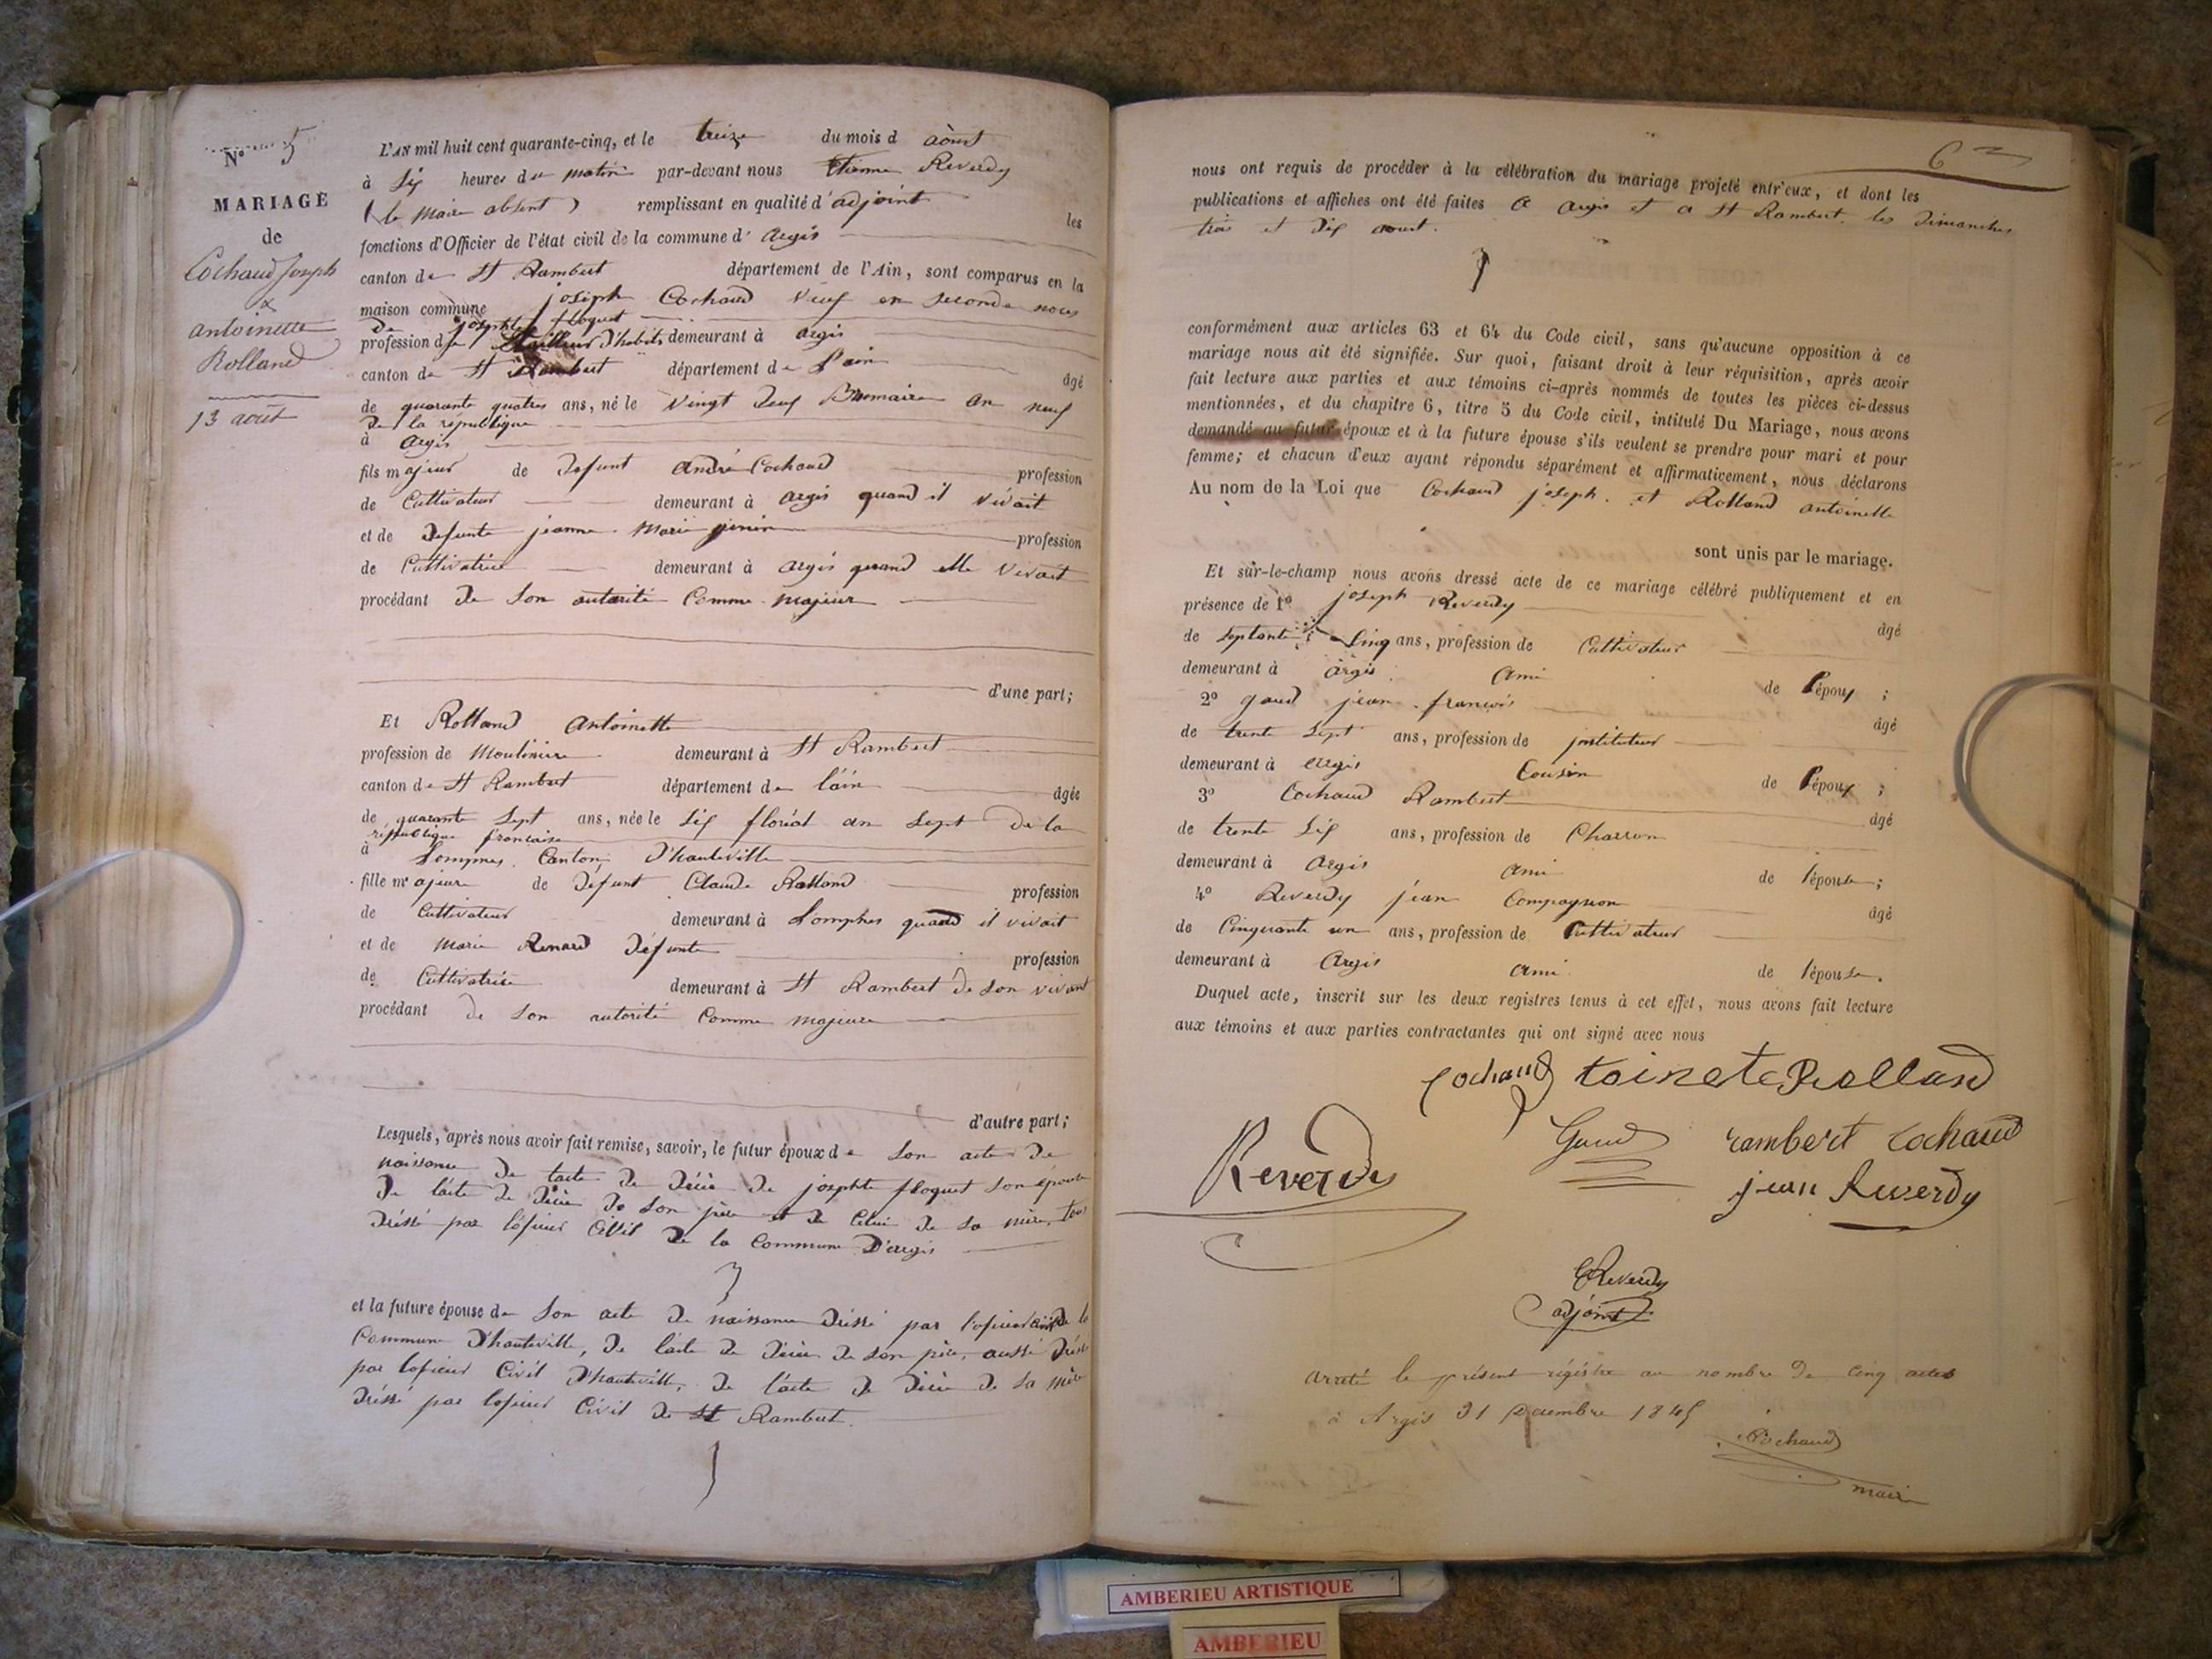 N° 5
MARIAGE
de
Cochaud Joseph
&
antoinette
Rolland
13 aout
L'AN mil huit cent quarante-cinq, et le treize du mois d aòust
à Six heures du matin par-devant nous Etienne Reverdy
(le Maire absent) remplissant en qualité d'adjoint les
fonctions d'Officier de l'état civil de la commune d' Argis
canton de St Rambert département de l'Ain, sont comparus en la
maison commune joseph Cochaud Veuf en seconde noces
De josephte floquet
profession de tailleur D'habits demeurant à argis
canton de St Rambert département de l'ain âgé
de quarante quatres ans, né le Vingt Deux Brumaire an neuf
De la république
à Argis
fils majeur de defunt André Cochaud profession
de Cultivateur demeurant à argis quand il vivait
et de Defunte jeanne Marie jenin profession
de Cultivatrice demeurant à argis quand elle Vivait
procédant De Son autorité Comme Majeur
d'une part;
Et Rolland Antoinette
profession de Moulinière demeurant à St Rambert
canton de St Rambert département de lâin âgée
de quarante Sept ans, née le Six floréal an Sept De la
république francaise
à Lompnes Canton D'hauteville
fille majeure de Défunt Claude Rolland profession
de Cultivateur demeurant à Lompnes quand il vivait
et de Marie Renard Défunte profession
de Cultivatrice demeurant à St Rambert De Son vivant
procédant De Son autorité Comme Majeure
d'autre part;
Lesquels, après nous avoir fait remise, savoir, le futur époux de Son acte De
naissance De l'acte De Décès De josephte floquet Son épouse
De lácte De Décès De Son père et De Celui De Sa mère, tous
Dréssé par lóficier Civil De la Commune D'argis
et la future épouse de Son acte De naissance Dréssé par l'oficier civil De la
Commune D'hauteville, De lácte De Décès De Son père, aussi Dréssé
par loficier Civil D'hauteville, De lácte De Décès De Sa mère
Dréssé par loficier Civil De St Rambert.
6
nous ont requis de procéder à la célébration du mariage projeté entr'eux, et dont les
publications et affiches ont été faites a Argis et a St Rambert les Dimanches
trois et Dix aout.
conformément aux articles 63 et 64 du Code civil, sans qu'aucune opposition à ce
mariage nous ait été signifiée. Sur quoi, faisant droit à leur réquisition, après avoir
fait lecture aux parties et aux témoins ci-après nommés de toutes les pièces ci-dessus
mentionnées, et du chapitre 6, titre 5 du Code civil, intitulé Du Mariage, nous avons
demandé au futur époux et à la future épouse s'ils veulent se prendre pour mari et pour
femme; et chacun d'eux ayant répondu séparément et affirmativement, nous déclarons
Au nom de la Loi que Cochaud joseph et Rolland antoinette
sont unis par le mariage.
Et sur-le-champ nous avons dressé acte de ce mariage célébré publiquement et en
présence de 1° joseph Reverdy âgé
de Septante Cinq ans, profession de Cultivateur
demeurant à argis Ami de l'époux ;
2° gaud jean françois âgé
de trente Sept ans, profession de jnstituteur
demeurant à argis Cousin de l'époux ;
3° Cochaud Rambert âgé
de trente Six ans, profession de Charron
demeurant à Argis Ami de l'épouse ;
4° Reverdy jean Compagnon âgé
de Cinquante un ans, profession de Cultivateur
demeurant à Argis ami de l'épouse.
Duquel acte, inscrit sur les deux registres tenus à cet effet, nous avons fait lecture
aux témoins et aux parties contractantes qui ont signé avec nous
Cochaud toinete Rolland
Reverdy Gaud rambert cochaud
jean Reverdy
E Reverdy
adjoint
arreté le présent régistre au nombre De Cinq actes
à Argis 31 Décembre 1845
Cochaud
maire
AMBERIEU ARTISTIQUE
AMBERIEU